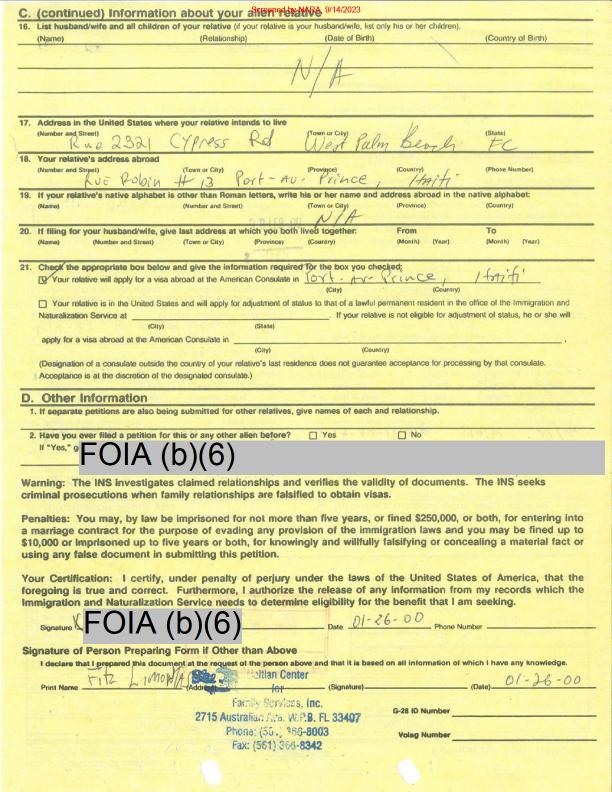 Screened by NARA, 9/14/2023
C. (continued) Information about your alien relative
16. List husband/wife and all children of your relative (if your relative is your husband/wife, list only his or her children).
(Name) (Relationship) (Date of Birth) (Country of Birth)
N/A
17. Address in the United States where your relative intends to live
(Number and Street) (Town or City) (State)
Rue 2321 Cypress Rd West Palm Beach FL
18. Your relative's address abroad
(Number and Street) (Town or City) (Province) (Country) (Phone Number)
Rue Robin # 13 Port-Au-Prince, Haiti
19. If your relative's native alphabet is other than Roman letters, write his or her name and address abroad in the native alphabet:
(Name) (Number and Street) (Town or City) (Province) (Country)
N/A
20. If filing for your husband/wife, give last address at which you both lived together: From To
(Name) (Number and Street) (Town or City) (Province) (Country) (Month) (Year) (Month) (Year)
21. Check the appropriate box below and give the information required for the box you checked:
Your relative will apply for a visa abroad at the American Consulate in Port-Au-Prince, Haiti
(City) (Country)
Your relative is in the United States and will apply for adjustment of status to that of a lawful permanent resident in the office of the Immigration and
Naturalization Service at . If your relative is not eligible for adjustment of status, he or she will
(City) (State)
apply for a visa abroad at the American Consulate in .
(City) (Country)
(Designation of a consulate outside the country of your relative's last residence does not guarantee acceptance for processing by that consulate.
Acceptance is at the discretion of the designated consulate.)
D. Other Information
1. If separate petitions are also being submitted for other relatives, give names of each and relationship.
2. Have you ever filed a petition for this or any other alien before? Yes No
If "Yes," g
FOIA (b)(6)
Warning: The INS investigates claimed relationships and verifies the validity of documents. The INS seeks
criminal prosecutions when family relationships are falsified to obtain visas.
Penalties: You may, by law be imprisoned for not more than five years, or fined $250,000, or both, for entering into
a marriage contract for the purpose of evading any provision of the immigration laws and you may be fined up to
$10,000 or imprisoned up to five years or both, for knowingly and willfully falsifying or concealing a material fact or
using any false document in submitting this petition.
Your Certification: I certify, under penalty of perjury under the laws of the United States of America, that the
foregoing is true and correct. Furthermore, I authorize the release of any information from my records which the
Immigration and Naturalization Service needs to determine eligibility for the benefit that I am seeking.
Signature X FOIA (b)(6) Date 01-26-00 Phone Number
Signature of Person Preparing Form if Other than Above
I declare that I prepared this document at the request of the person above and that it is based on all information of which I have any knowledge.
Print Name Fitz (Address) (Signature) (Date) 01-26-00
Haitian Center
for
Family Services, Inc.
2715 Australian Ave. W.P.B. FL 33407
Phone: (561) 366-8003
Fax: (561) 366-8342
G-28 ID Number
Volag Number